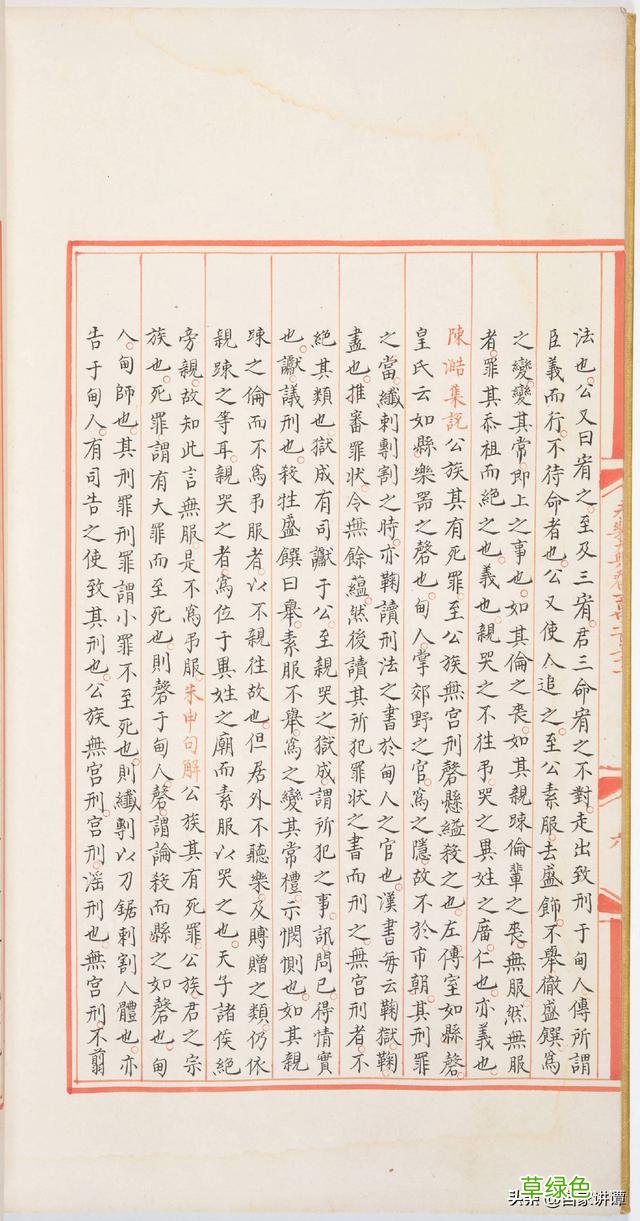 法也公又曰宥之至及三宥君三命宥之不對走出致刑于甸人傳所謂
臣義而行不待命者也公又使人追之至公素服去盛飾不舉徹盛饌爲
之變變其常即上之事也如其倫之喪如其親踈倫輩之喪無服然無服
者罪其忝祖而絕之也義也親哭之不往弔哭之異姓之廟仁也亦義也
陳澔集説公族其有死罪至公族無宮刑磬縣縊殺之也左傳室如縣磬
皇氏云如縣樂器之磬也甸人掌郊野之官爲之隱故不於市朝其刑罪
之當纖剌剸割之時亦鞠讀刑法之書於甸人之官也漢書每云鞠獄鞠
盡也推審罪狀令無餘蘊然後讀其所犯罪狀之書而刑之無宮刑者不
絕其類也獄成有司讞于公至親哭之獄成謂所犯之事訊問已得情實
也讞議刑也殺牲盛饌曰舉素服不舉爲之變其常禮示憫惻也如其親
踈之倫而不爲弔服者以不親往故也但居外不聽樂及賻贈之類仍依
親踈之等耳親哭之者爲位于異姓之廟而素服以哭之也天子諸侯絕
旁親故知此言無服是不爲弔服朱申句解公族其有死罪公族君之宗
族也死罪謂有大罪而至死也則磬于甸人磬謂論殺而縣之如磬也甸
人甸師也其刑罪刑罪謂小罪不至死也則纖剸以刀鋸剌割人體也亦
告于甸人有司告之使致其刑也公族無宮刑宮刑淫刑也無宮刑不翦
六
草绿色
头条 @百家讲谭